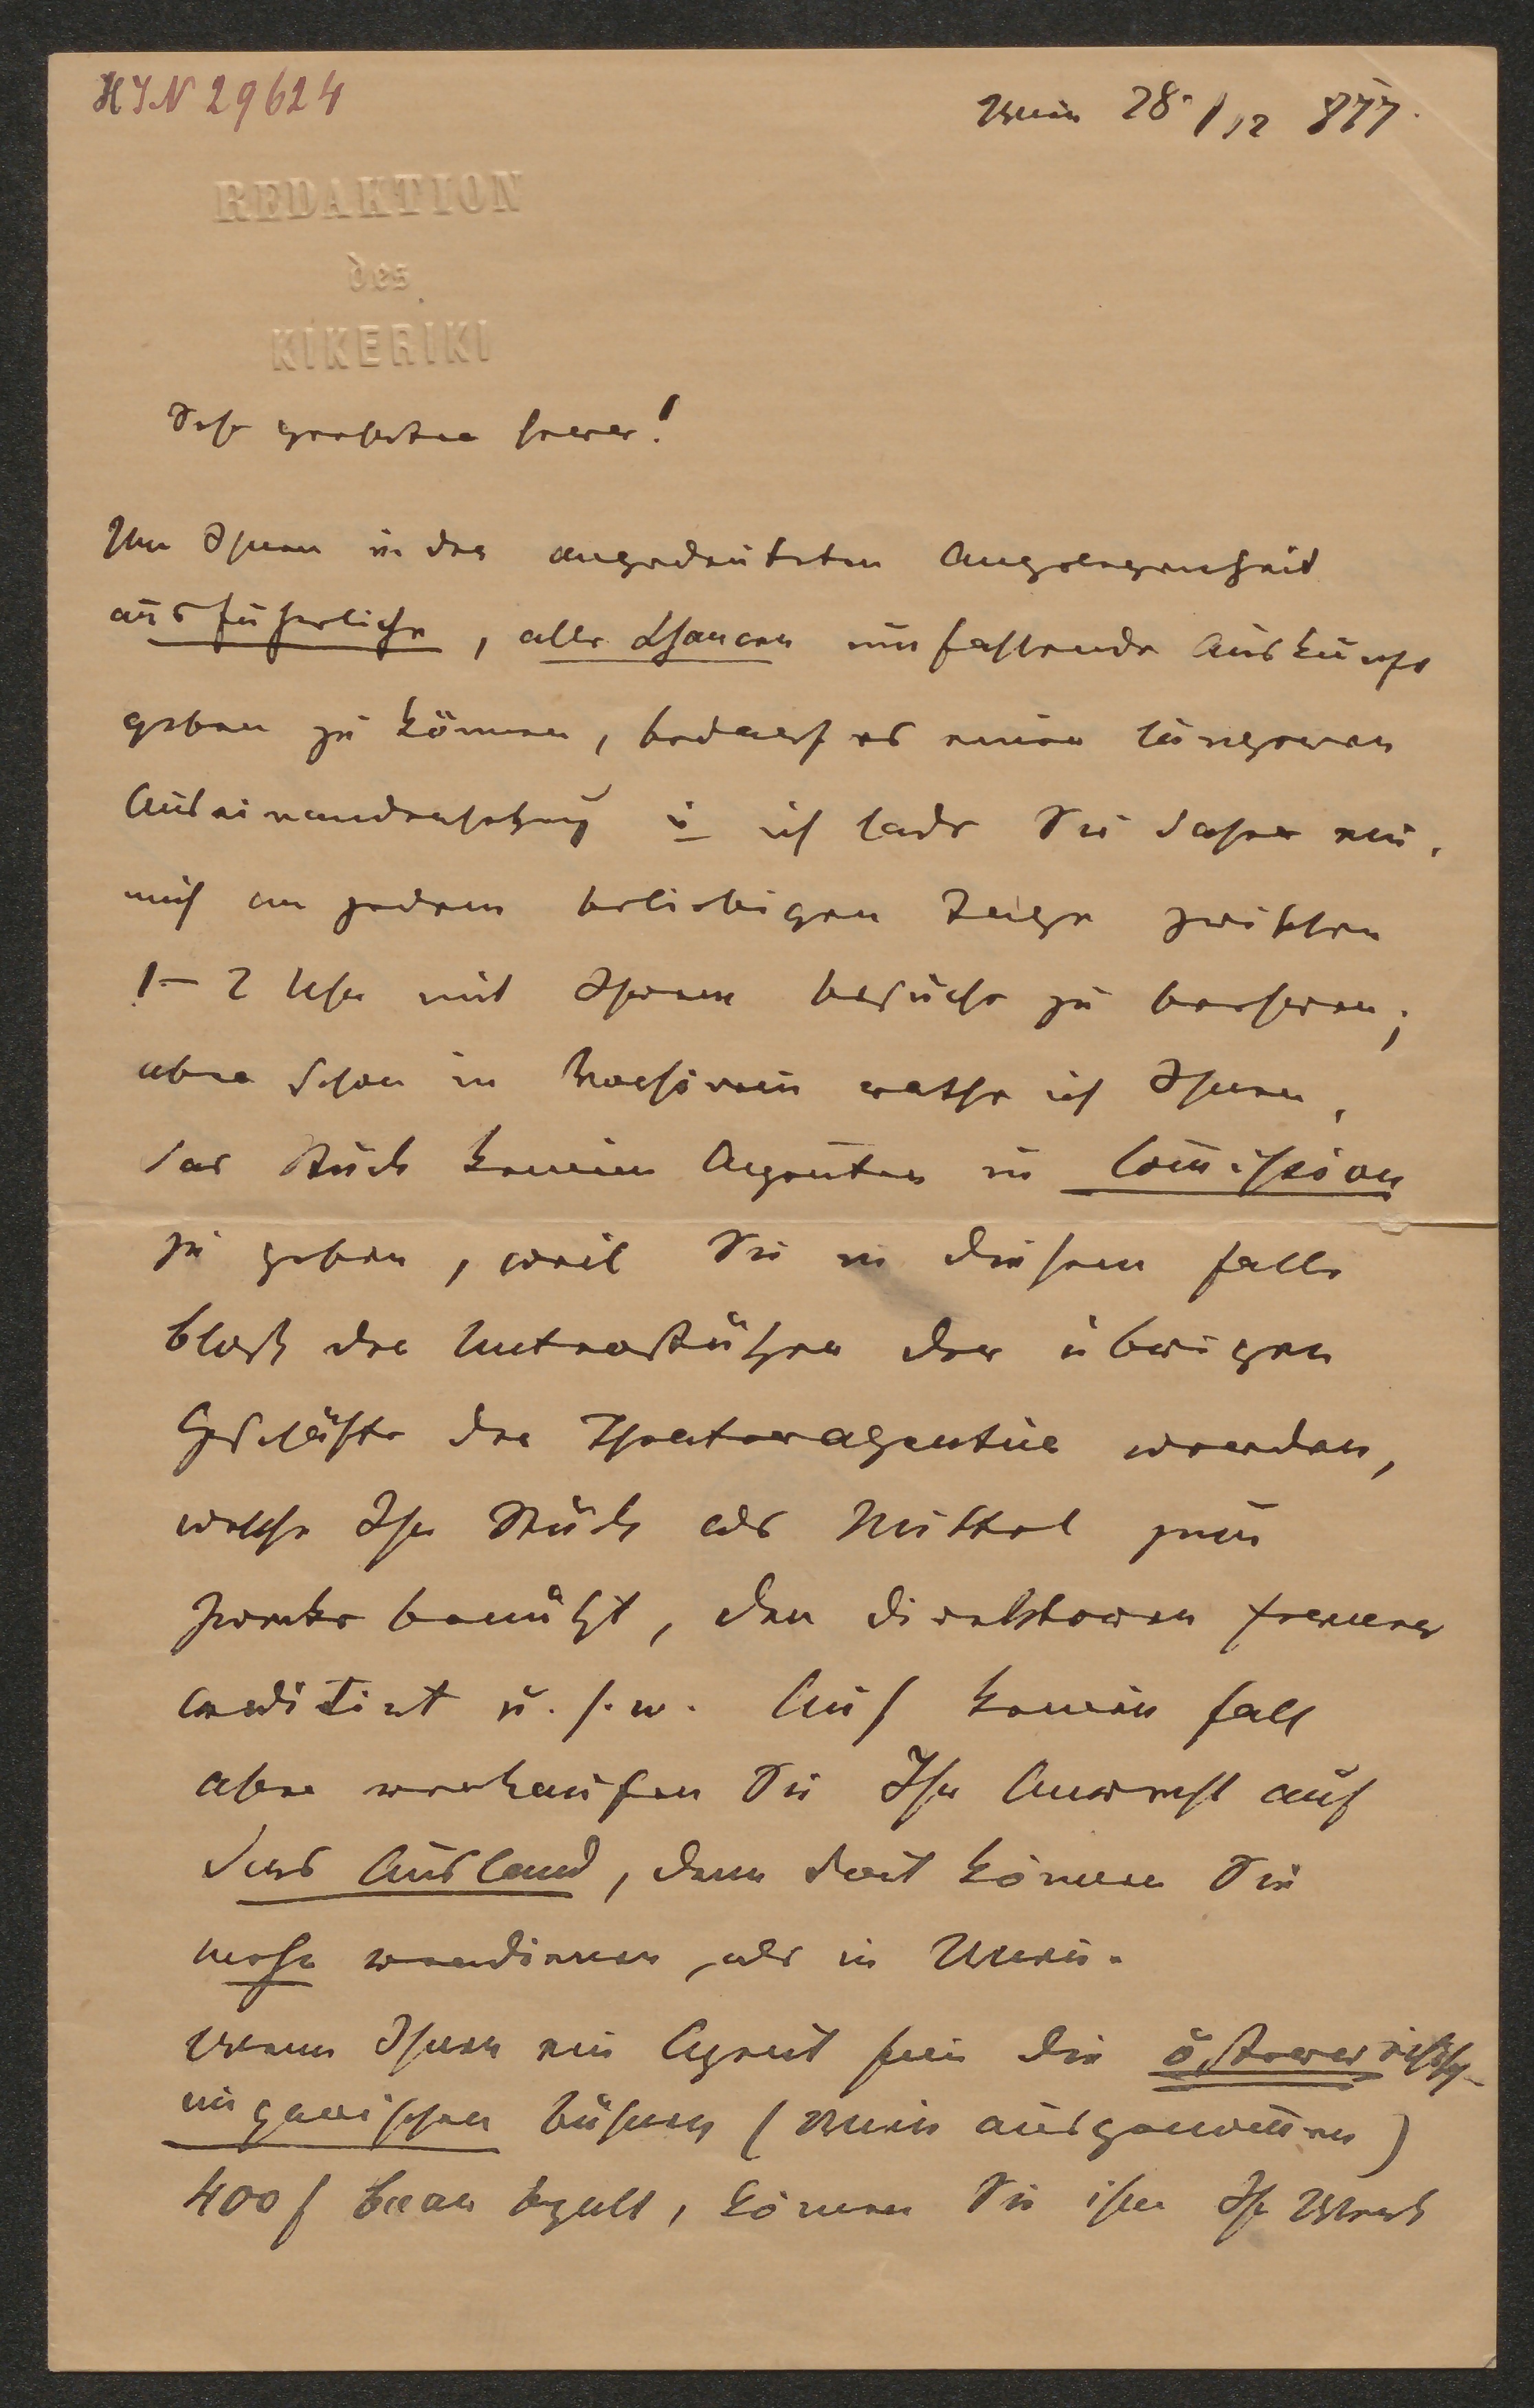 HIN 29624
Wien 28./12 877.
REDAKTION
des
KIKERIKI
Sehr geehrter Herr!
Um Ihnen in der angedeuteten Angelegenheit
ausführliche, alle Chancen umfassende Auskunft
geben zu können, bedarf es einer längeren
Auseinandersetzung u ich lade Sie daher ein,
mich an jedem beliebigen Tage zwischen
1–2 Uhr mit Ihrem Besuche zu beehren;
aber schon im Vorhinein rathe ich Ihnen,
das Stück keinem Agenten in Com̅ission
zu geben, weil Sie in diesem Falle
bloß der Unterstützer der übrigen
Geschäfte der Theateragentur werden,
welche Ihr Stück als Mittel zum
Zwecke benützt, den Direktoren ferner
creditirt u. s. w. Auf keinen Fall
aber verkaufen Sie Ihr Anrecht auf
das Ausland, denn dort können Sie
mehr verdienen, als in Wien.
Wenn Ihnen ein Agent für die österreichisch-
ungarischen Bühnen (Wien ausgenom̅en)
400 f baar bezalt, können Sie ihm Ihr Werk